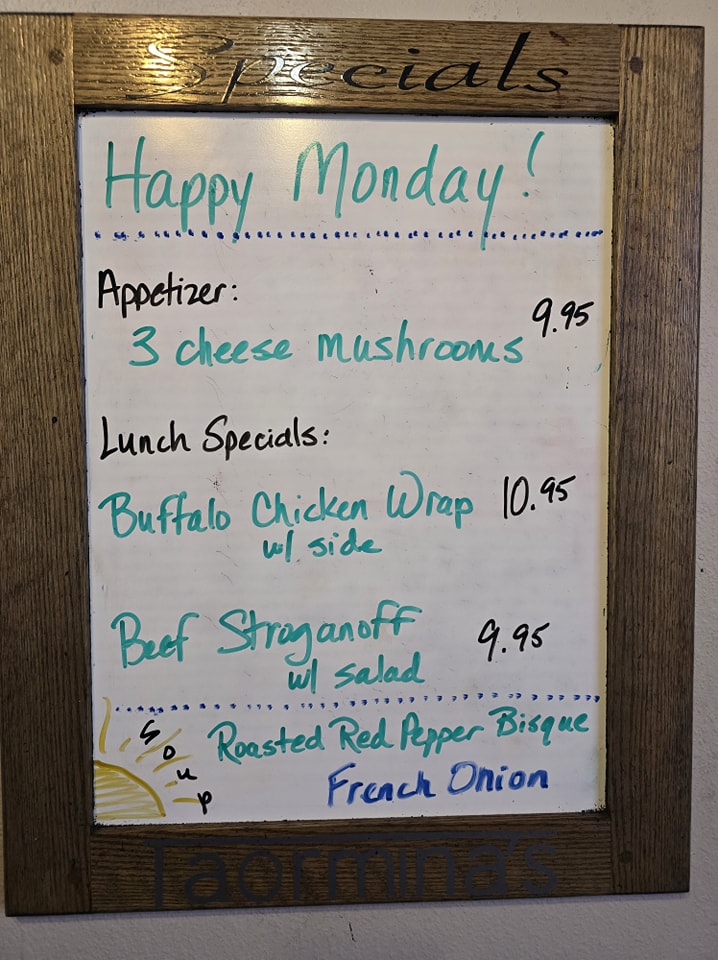 Specials
Happy Monday!
Appetizer:
3 cheese mushrooms 9.95
Lunch Specials:
Buffalo Chicken Wrap 10.95
w/ side
Beef Stroganoff 9.95
w/ salad
Soup
Roasted Red Pepper Bisque
French Onion
Taormina's